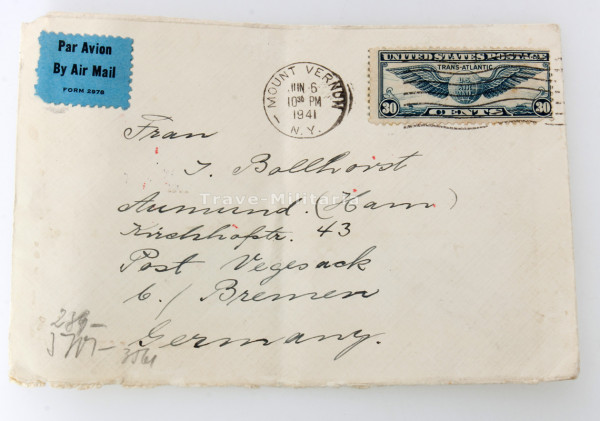 Par Avion
By Air Mail
FORM 2978
MOUNT VERNON
JUN 6
10 30 PM
1941
N.Y.
UNITED STATES POSTAGE
TRANS-ATLANTIC
30 CENTS 30
Frau
J. Bollhorst
Aumund. (Hann)
Kirchhofstr. 43
Post Vegesack
b./ Bremen
Germany.
Trave-Militaria
286-